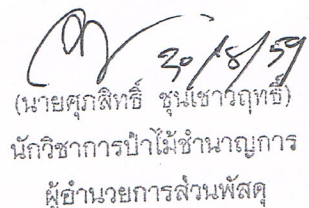 30/8/59
(นายศุภสิทธิ์ ชุนเชาวฤทธิ์)
นักวิชาการป่าไม้ชำนาญการ
ผู้อำนวยการส่วนพัสดุ